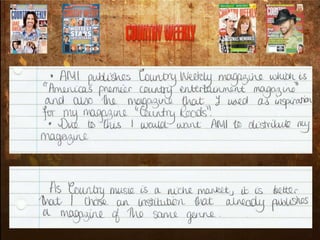 COUNTRY WEEKLY
• AMI publishes Country Weekly magazine which is
"America's premier country entertainment magazine"
and also the magazine that I used as inspiration
for my magazine "Country Roads".
• Due to this I would want AMI to distribute my
magazine
As Country music is a niche market, it is better
that I chose an institution that already publishes
a magazine of the same genre.